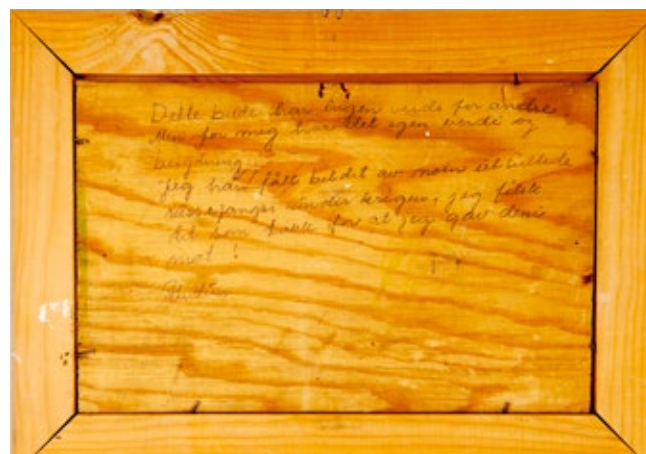 Dette bildet har ingen verdi for andre
Men for meg har det egen verdi og
betydning.
Jeg har fått bildet av noen
under krigen, jeg fikk
det som takk for at jeg gav dem
mat!